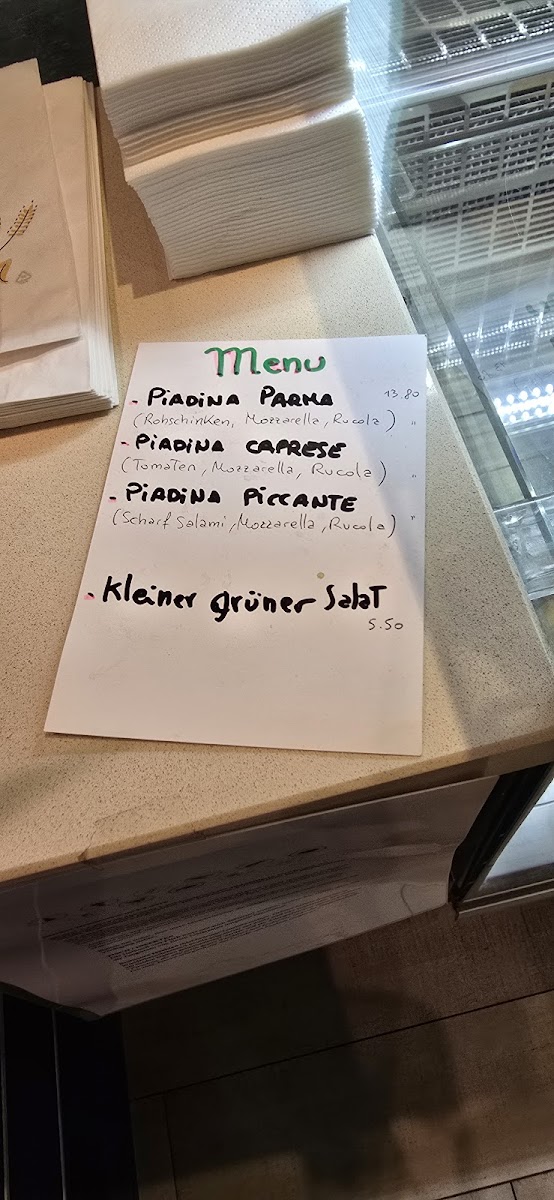 Menu
- PiADiNA PARMA 13.80
(Rohschinken, Mozzarella, Rucola) "
- PiADiNA CAPRESE
(Tomaten, Mozzarella, Rucola) "
- PiADiNA PiCCANTE
(Scharf Salami, Mozzarella, Rucola) "
- kleiner grüner SalaT
5.50